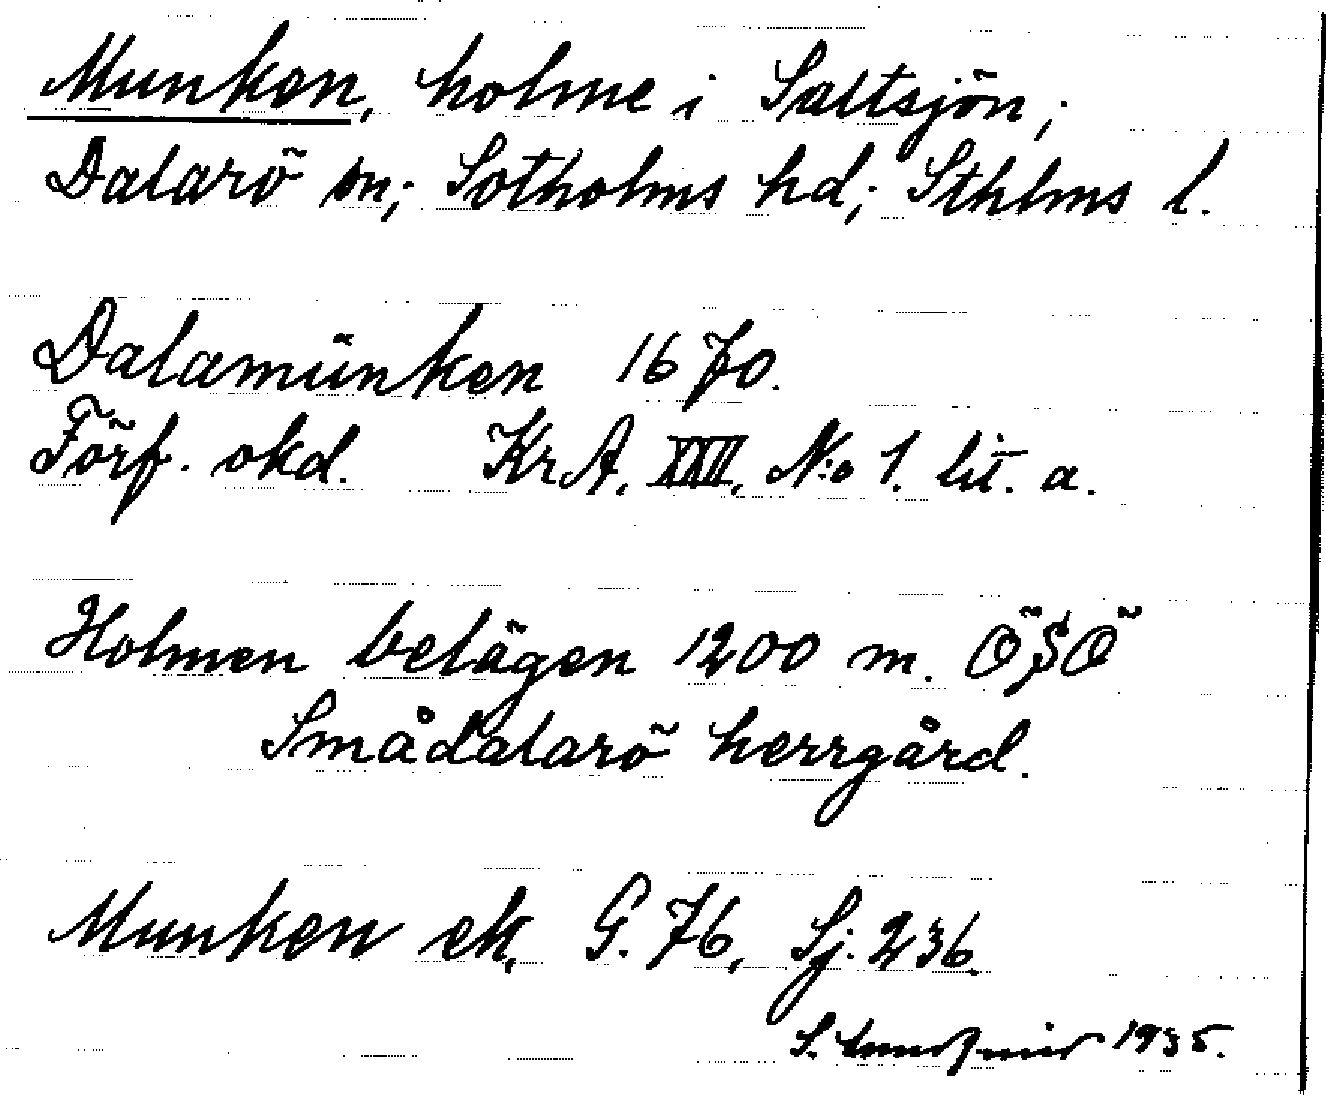 Munken, holme i Saltsjön;
Dalarö sn; Sotholms hd; Sthlms l.
Dalamünken 1670.
Förf. okd. KrA. XXII, N:o 1. lit. a.
Holmen belägen 1200 m. ÖSÖ
Smådalarö herrgård.
Munken ek, G. 76, Sj. 236.
S. 1935.